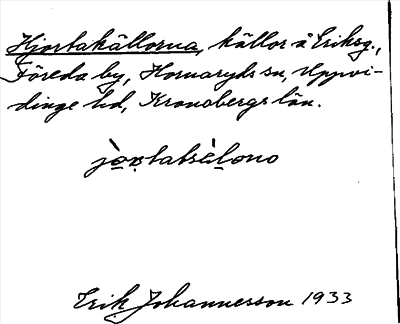 Hjortakällorna, källor å Eriksg.,
Föreda by, Hornaryds sn, Uppvi-
dinge hd, Kronobergs län.
jo̱rtatsèlono
Erik Johannesson 1933